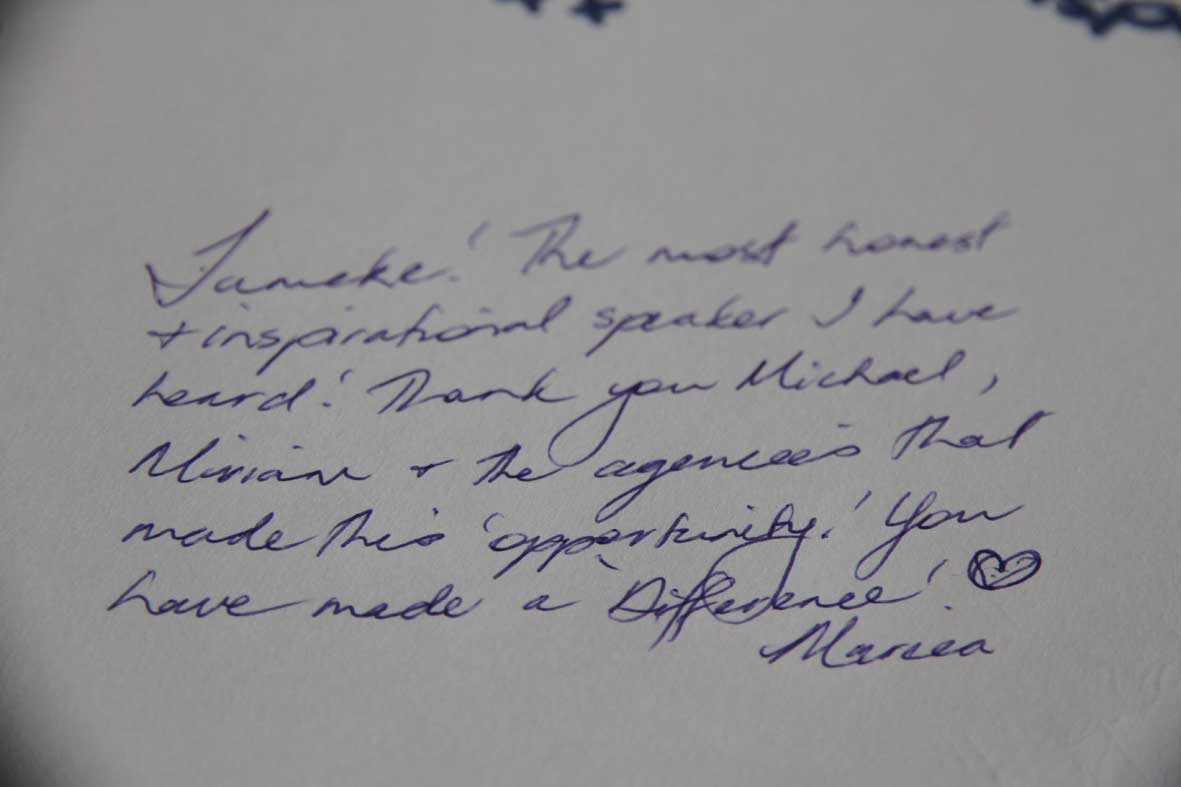 Jameke! The most honest
+ inspirational speaker I have
heard! Thank you Michael,
Miriam + the agencies that
made this 'opportunity!' You
have made a Difference! ♡